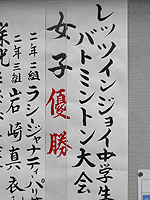 レッツインジョイ中学生
バトミントン大会
女子優勝
二年二組 ラシージャナティパリ
二年三組 岩崎真衣